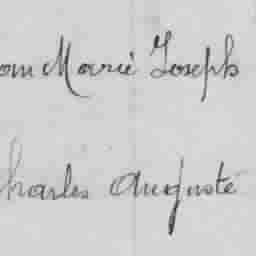 Marie Joseph
harles Auguste